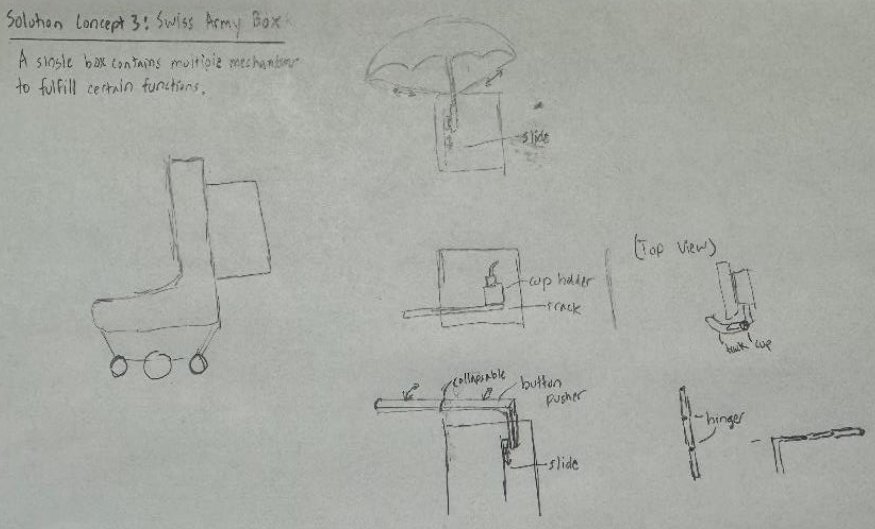 Solution Concept 3: Swiss Army Box
A single box contains multiple mechanisms
to fulfill certain functions.
slide
(Top View)
cup holder
track
track cup
collapsable
button
pusher
hinges
slide